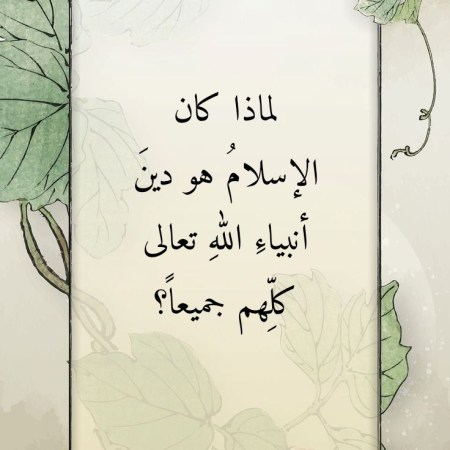 لماذا كان
الإسلامُ هو دينَ
أنبياءِ اللهِ تعالى
كلِّهم جميعاً؟